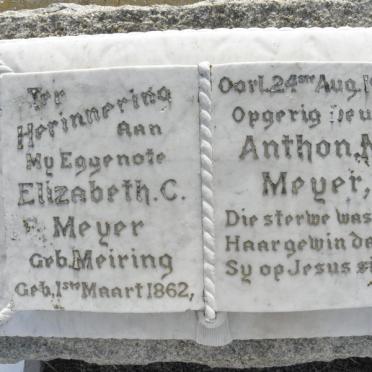 Ter
Herinnering
Aan
My Eggenote
Elizabeth. C.
Meyer
Geb. Meiring
Geb. 1ste Maart 1862,
Oorl. 24ste Aug. 19
Opgerig
Anthon. M
Meyer,
Die sterwe was
Haar gewin de
Sy op Jesus